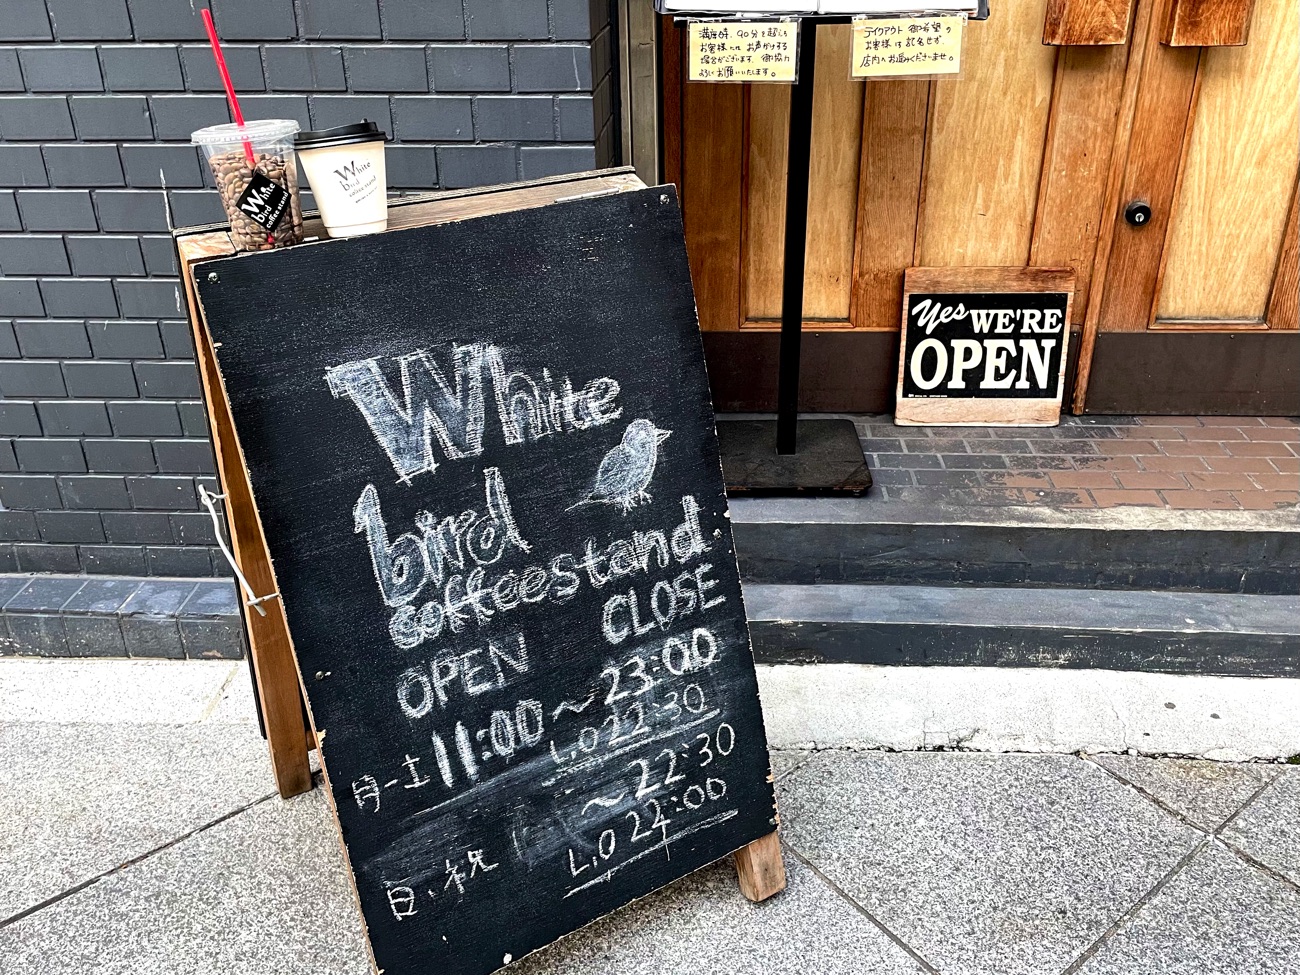 満席時、90分を超える
お客様にはお声がけする
場合がございます。御協力
よろしくお願いいたします。
テイクアウト御希望の
お客様は記名せず、
店内へお進みくださいませ。
White
bird
coffee stand
White
bird
coffee stand
Yes WE'RE
OPEN
White
bird
coffeestand
OPEN CLOSE
月-土 11:00 ~ 23:00
L.O 22:30
~ 22:30
日、祝 L.O 22:00